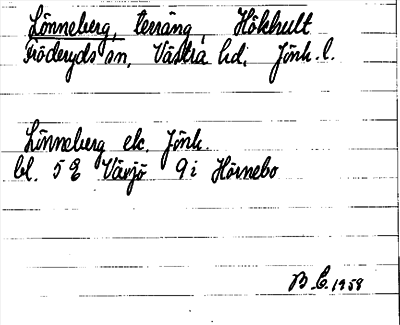 Lönneberg, terräng, Hökhult
Fröderyds sn, Västra hd, Jönk. l.
Lönneberg ek. Jönk.
bl. 5 E Växjö 9 i Hörnebo
B C. 1958